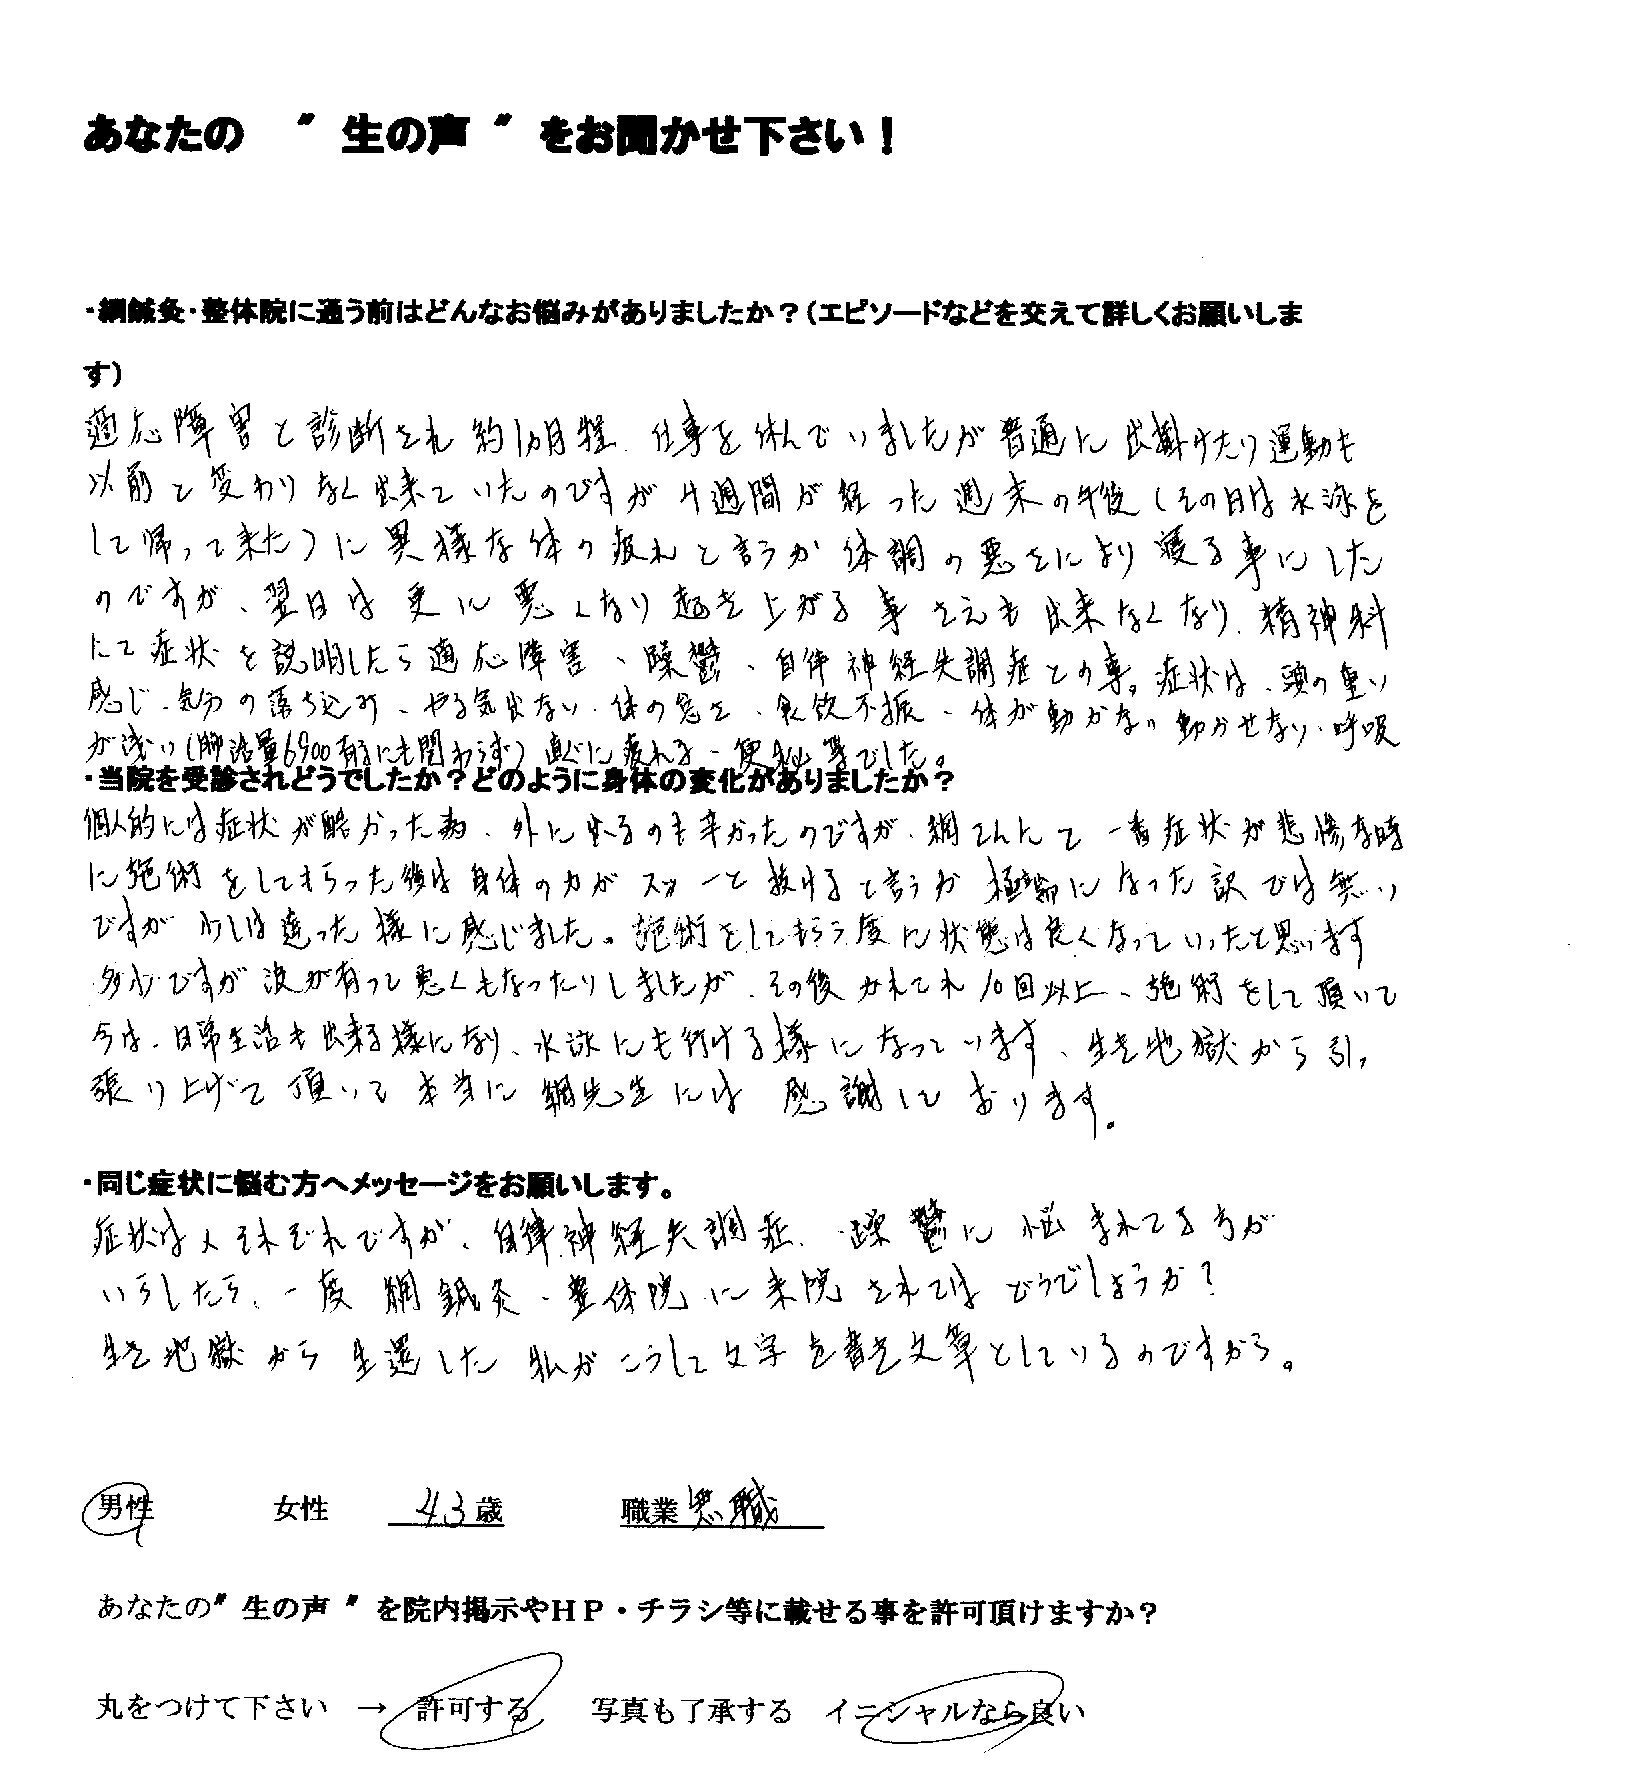 あなたの　〃生の声〃をお聞かせ下さい！
・綱鍼灸・整体院に通う前はどんなお悩みがありましたか？（エピソードなどを交えて詳しくお願いしま
す）
適応障害と診断され約1ヵ月程、仕事を休んでいましたが普通に出掛けたり運動も
以前と変わりなく出来ていたのですが4週間が経った週末の午後（その日は水泳を
して帰って来た）に異様な体の疲れと言うか体調の悪さにより寝る事にした
のですが、翌日は更に悪くなり起き上がる事さえも出来なくなり、精神科
にて症状を説明したら適応障害、躁鬱、自律神経失調症との事。症状は、頭の重い
感じ、気分の落ち込み、やる気出ない、体の怠さ、食飲不振、体が動かない動かせない、呼吸
が浅い（肺活量6900有るにも関わらず）直ぐに疲れる、便秘等でした。
・当院を受診されどうでしたか？どのように身体の変化がありましたか？
個人的には症状が酷かった為、外に出るのも辛かったのですが、綱さんにて一番症状が悲惨な時
に施術をしてもらった後は身体の力がスッーと抜けると言うか極論になった訳では無い
ですが少しは違った様に感じました。施術をしてもらう度に状態は良くなっていったと思います
多少ですが波が有って悪くもなったりしましたが、その後かれこれ10回以上、施術をして頂いて
今は、日常生活も出来る様になり、水泳にも行ける様になっています、生き地獄から引っ
張り上げて頂いて本当に綱先生には感謝しております。
・同じ症状に悩む方へメッセージをお願いします。
症状は人それぞれですが、自律神経失調症、躁鬱に悩まれてる方が
いらしたら、一度綱鍼灸・整体院に来院されてはどうでしょうか？
生き地獄から生還した私がこうして文字を書き文章としているのですから。
男性　女性　43歳　職業 無職
あなたの〃生の声〃を院内掲示やＨＰ・チラシ等に載せる事を許可頂けますか？
丸をつけて下さい　→　許可する　写真も了承する　イニシャルなら良い